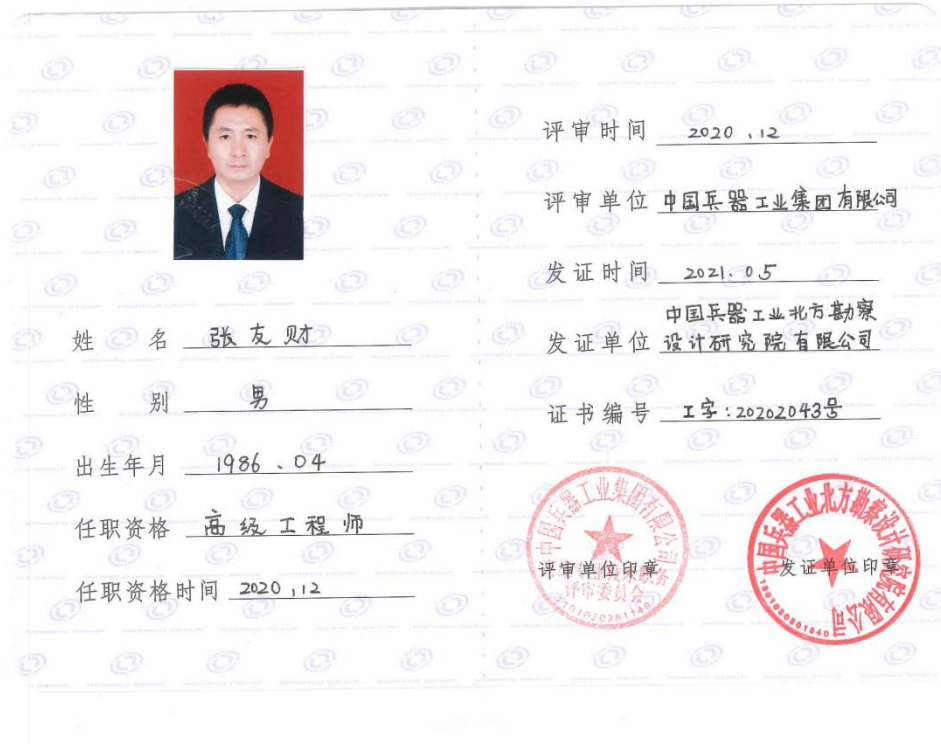 姓名 张友财
性别 男
出生年月 1986、04
任职资格 高级工程师
任职资格时间 2020,12
评审时间 2020,12
评审单位 中国兵器工业集团有限公司
发证时间 2021.05
中国兵器工业北方勘察
发证单位 设计研究院有限公司
证书编号 工字:20202043号
中国兵器工业集团有限公司
评审委员会
评审单位印章
中国兵器工业北方勘察设计研究院有限公司
发证单位印章